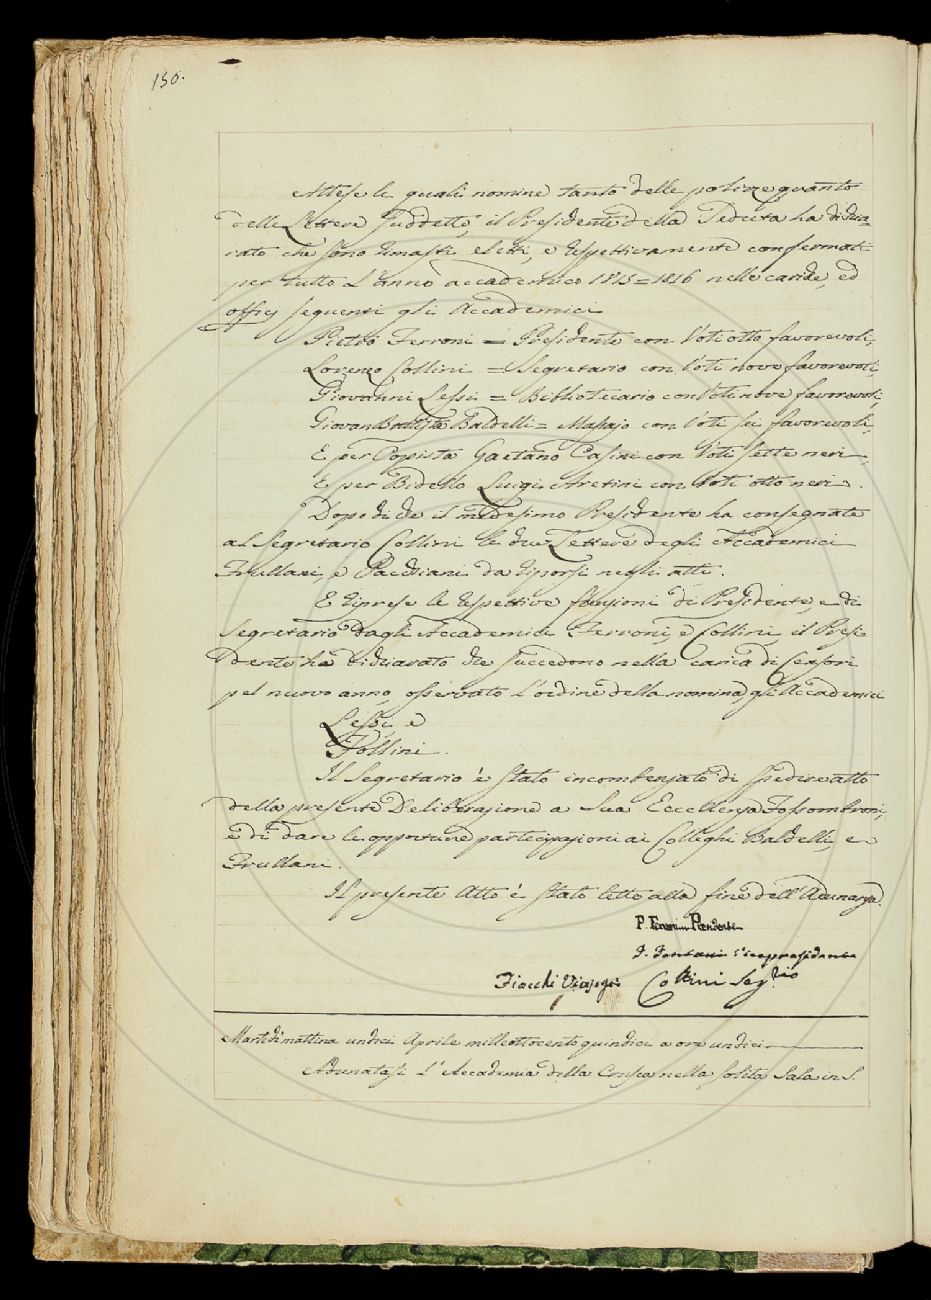 150.
Attese le quali nomine tanto delle polizze quanto
delle Lettere suddette, il Presidente della Seduta ha dichia=
rato che sono rimasti eletti, e respettivamente confermati
per tutto l'anno accademico 1815=1816 nelle cariche, ed
officj seguenti gli Accademici
Pietro Ferroni = Presidente con Voti otto favorevoli,
Lorenzo Collini = Segretario con Voti nove favorevoli,
Giovanni Lessi = Bibliotecario con Voti nove favorevoli,
Giovan Battista Baldelli = Massajo con Voti sei favorevoli,
E per Copista Gaetano Casini con Voti sette neri,
E per Bidello Luigi Aretini con Voti otto neri.
Dopo di che il medesimo Presidente ha consegnate
al Segretario Collini le due Lettere degli Accademici
Frullani, e Pacchiani da riporsi negli atti.
E riprese le respettive funzioni di Presidente, e di
Segretario dagli Accademici Ferroni, e Collini, il Presi=
dente ha dichiarato che succedono nella carica di Censori
pel nuovo anno, osservato l'ordine della nomina, gli Accademici
Lessi e
Follini.
Il Segretario è stato incombenzato di spedire atto
della presente Deliberazione a Sua Eccellenza Fossombroni,
e di dare le opportune partecipazioni ai Colleghi Baldelli, e
Frullani.
Il presente Atto è stato letto alla fine dell'Adunanza.
P. Ferroni Presidente
F. Fontani Vicepresidente
Fiacchi Collini Seg.rio
Martedì mattina undici Aprile milleottocentoquindici a ore undici
Adunatasi l'Accademia della Crusca nella solita Sala in S.